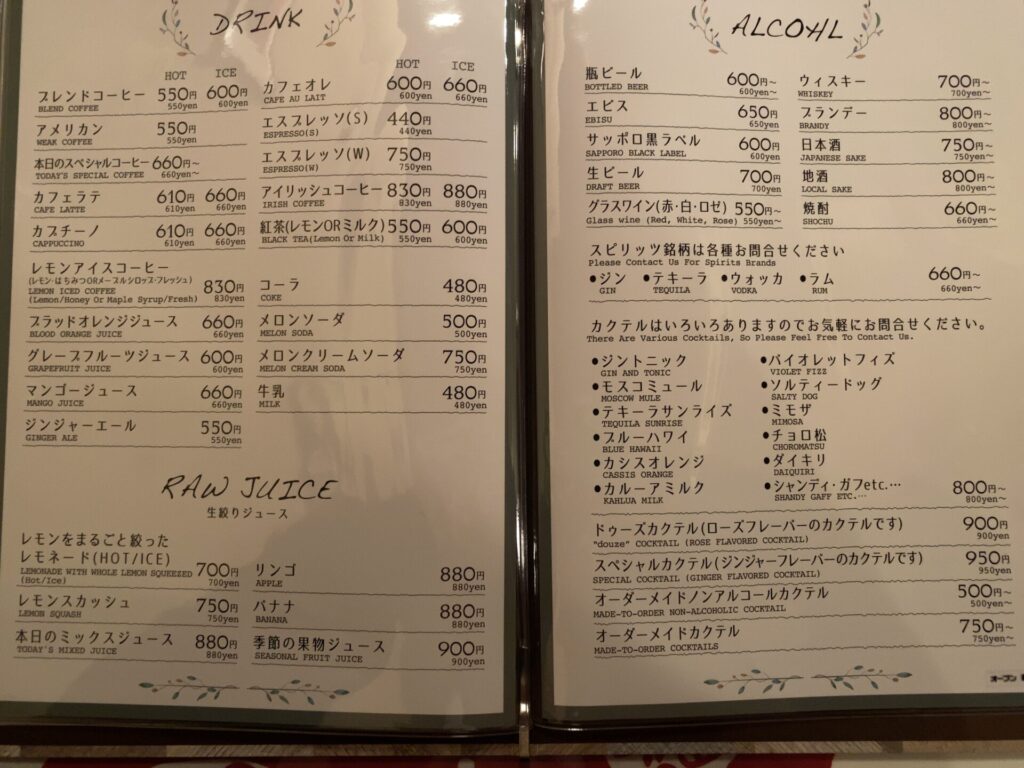 DRINK
HOT ICE
ブレンドコーヒー 550円 600円
BLEND COFFEE 550yen 600yen
アメリカン 550円
WEAK COFFEE 550yen
本日のスペシャルコーヒー 660円~
TODAY'S SPECIAL COFFEE 660yen~
カフェラテ 610円 660円
CAFE LATTE 610yen 660yen
カプチーノ 610円 660円
CAPPUCCINO 610yen 660yen
レモンアイスコーヒー
(レモン・はちみつORメープルシロップ・フレッシュ) 830円
LEMON ICED COFFEE
(Lemon/Honey Or Maple Syrup/Fresh) 830yen
ブラッドオレンジジュース 660円
BLOOD ORANGE JUICE 660yen
グレープフルーツジュース 600円
GRAPEFRUIT JUICE 600yen
マンゴージュース 660円
MANGO JUICE 660yen
ジンジャーエール 550円
GINGER ALE 550yen
HOT ICE
カフェオレ 600円 660円
CAFE AU LAIT 600yen 660yen
エスプレッソ(S) 440円
ESPRESSO(S) 440yen
エスプレッソ(W) 750円
ESPRESSO(W) 750yen
アイリッシュコーヒー 830円 880円
IRISH COFFEE 830yen 880yen
紅茶(レモンORミルク) 550円 600円
BLACK TEA(Lemon Or Milk) 550yen 600yen
コーラ 480円
COKE 480yen
メロンソーダ 500円
MELON SODA 500yen
メロンクリームソーダ 750円
MELON CREAM SODA 750yen
牛乳 480円
MILK 480yen
RAW JUICE
生絞りジュース
レモンをまるごと絞った
レモネード(HOT/ICE) 700円
LEMONADE WITH WHOLE LEMON SQUEEZED 700yen
(Hot/Ice)
レモンスカッシュ 750円
LEMON SQUASH 750yen
本日のミックスジュース 880円
TODAY'S MIXED JUICE 880yen
リンゴ 880円
APPLE 880yen
バナナ 880円
BANANA 880yen
季節の果物ジュース 900円
SEASONAL FRUIT JUICE 900yen
ALCOHL
瓶ビール 600円~
BOTTLED BEER 600yen~
エビス 650円
EBISU 650yen
サッポロ黒ラベル 600円
SAPPORO BLACK LABEL 600yen
生ビール 700円
DRAFT BEER 700yen
グラスワイン(赤・白・ロゼ) 550円~
Glass wine (Red, White, Rose) 550yen~
ウィスキー 700円~
WHISKEY 700yen~
ブランデー 800円~
BRANDY 800yen~
日本酒 750円~
JAPANESE SAKE 750yen~
地酒 800円~
LOCAL SAKE 800yen~
焼酎 660円~
SHOCHU 660yen~
スピリッツ銘柄は各種お問合せください
Please Contact Us For Spirits Brands
•ジン •テキーラ •ウォッカ •ラム 660円~
GIN TEQUILA VODKA RUM 660yen~
カクテルはいろいろありますのでお気軽にお問合せください。
There Are Various Cocktails, So Please Feel Free To Contact Us.
•ジントニック
GIN AND TONIC
•モスコミュール
MOSCOW MULE
•テキーラサンライズ
TEQUILA SUNRISE
•ブルーハワイ
BLUE HAWAII
•カシスオレンジ
CASSIS ORANGE
•カルーアミルク
KAHLUA MILK
•バイオレットフィズ
VIOLET FIZZ
•ソルティードッグ
SALTY DOG
•ミモザ
MIMOSA
•チョロ松
CHOROMATSU
•ダイキリ
DAIQUIRI
•シャンディ・ガフetc.… 800円~
SHANDY GAFF ETC.… 800yen~
ドゥーズカクテル(ローズフレーバーのカクテルです) 900円
"douze" COCKTAIL (ROSE FLAVORED COCKTAIL) 900yen
スペシャルカクテル(ジンジャーフレーバーのカクテルです) 950円
SPECIAL COCKTAIL (GINGER FLAVORED COCKTAIL) 950yen
オーダーメイドノンアルコールカクテル 500円~
MADE-TO-ORDER NON-ALCOHOLIC COCKTAIL 500yen~
オーダーメイドカクテル 750円~
MADE-TO-ORDER COCKTAILS 750yen~
オープン